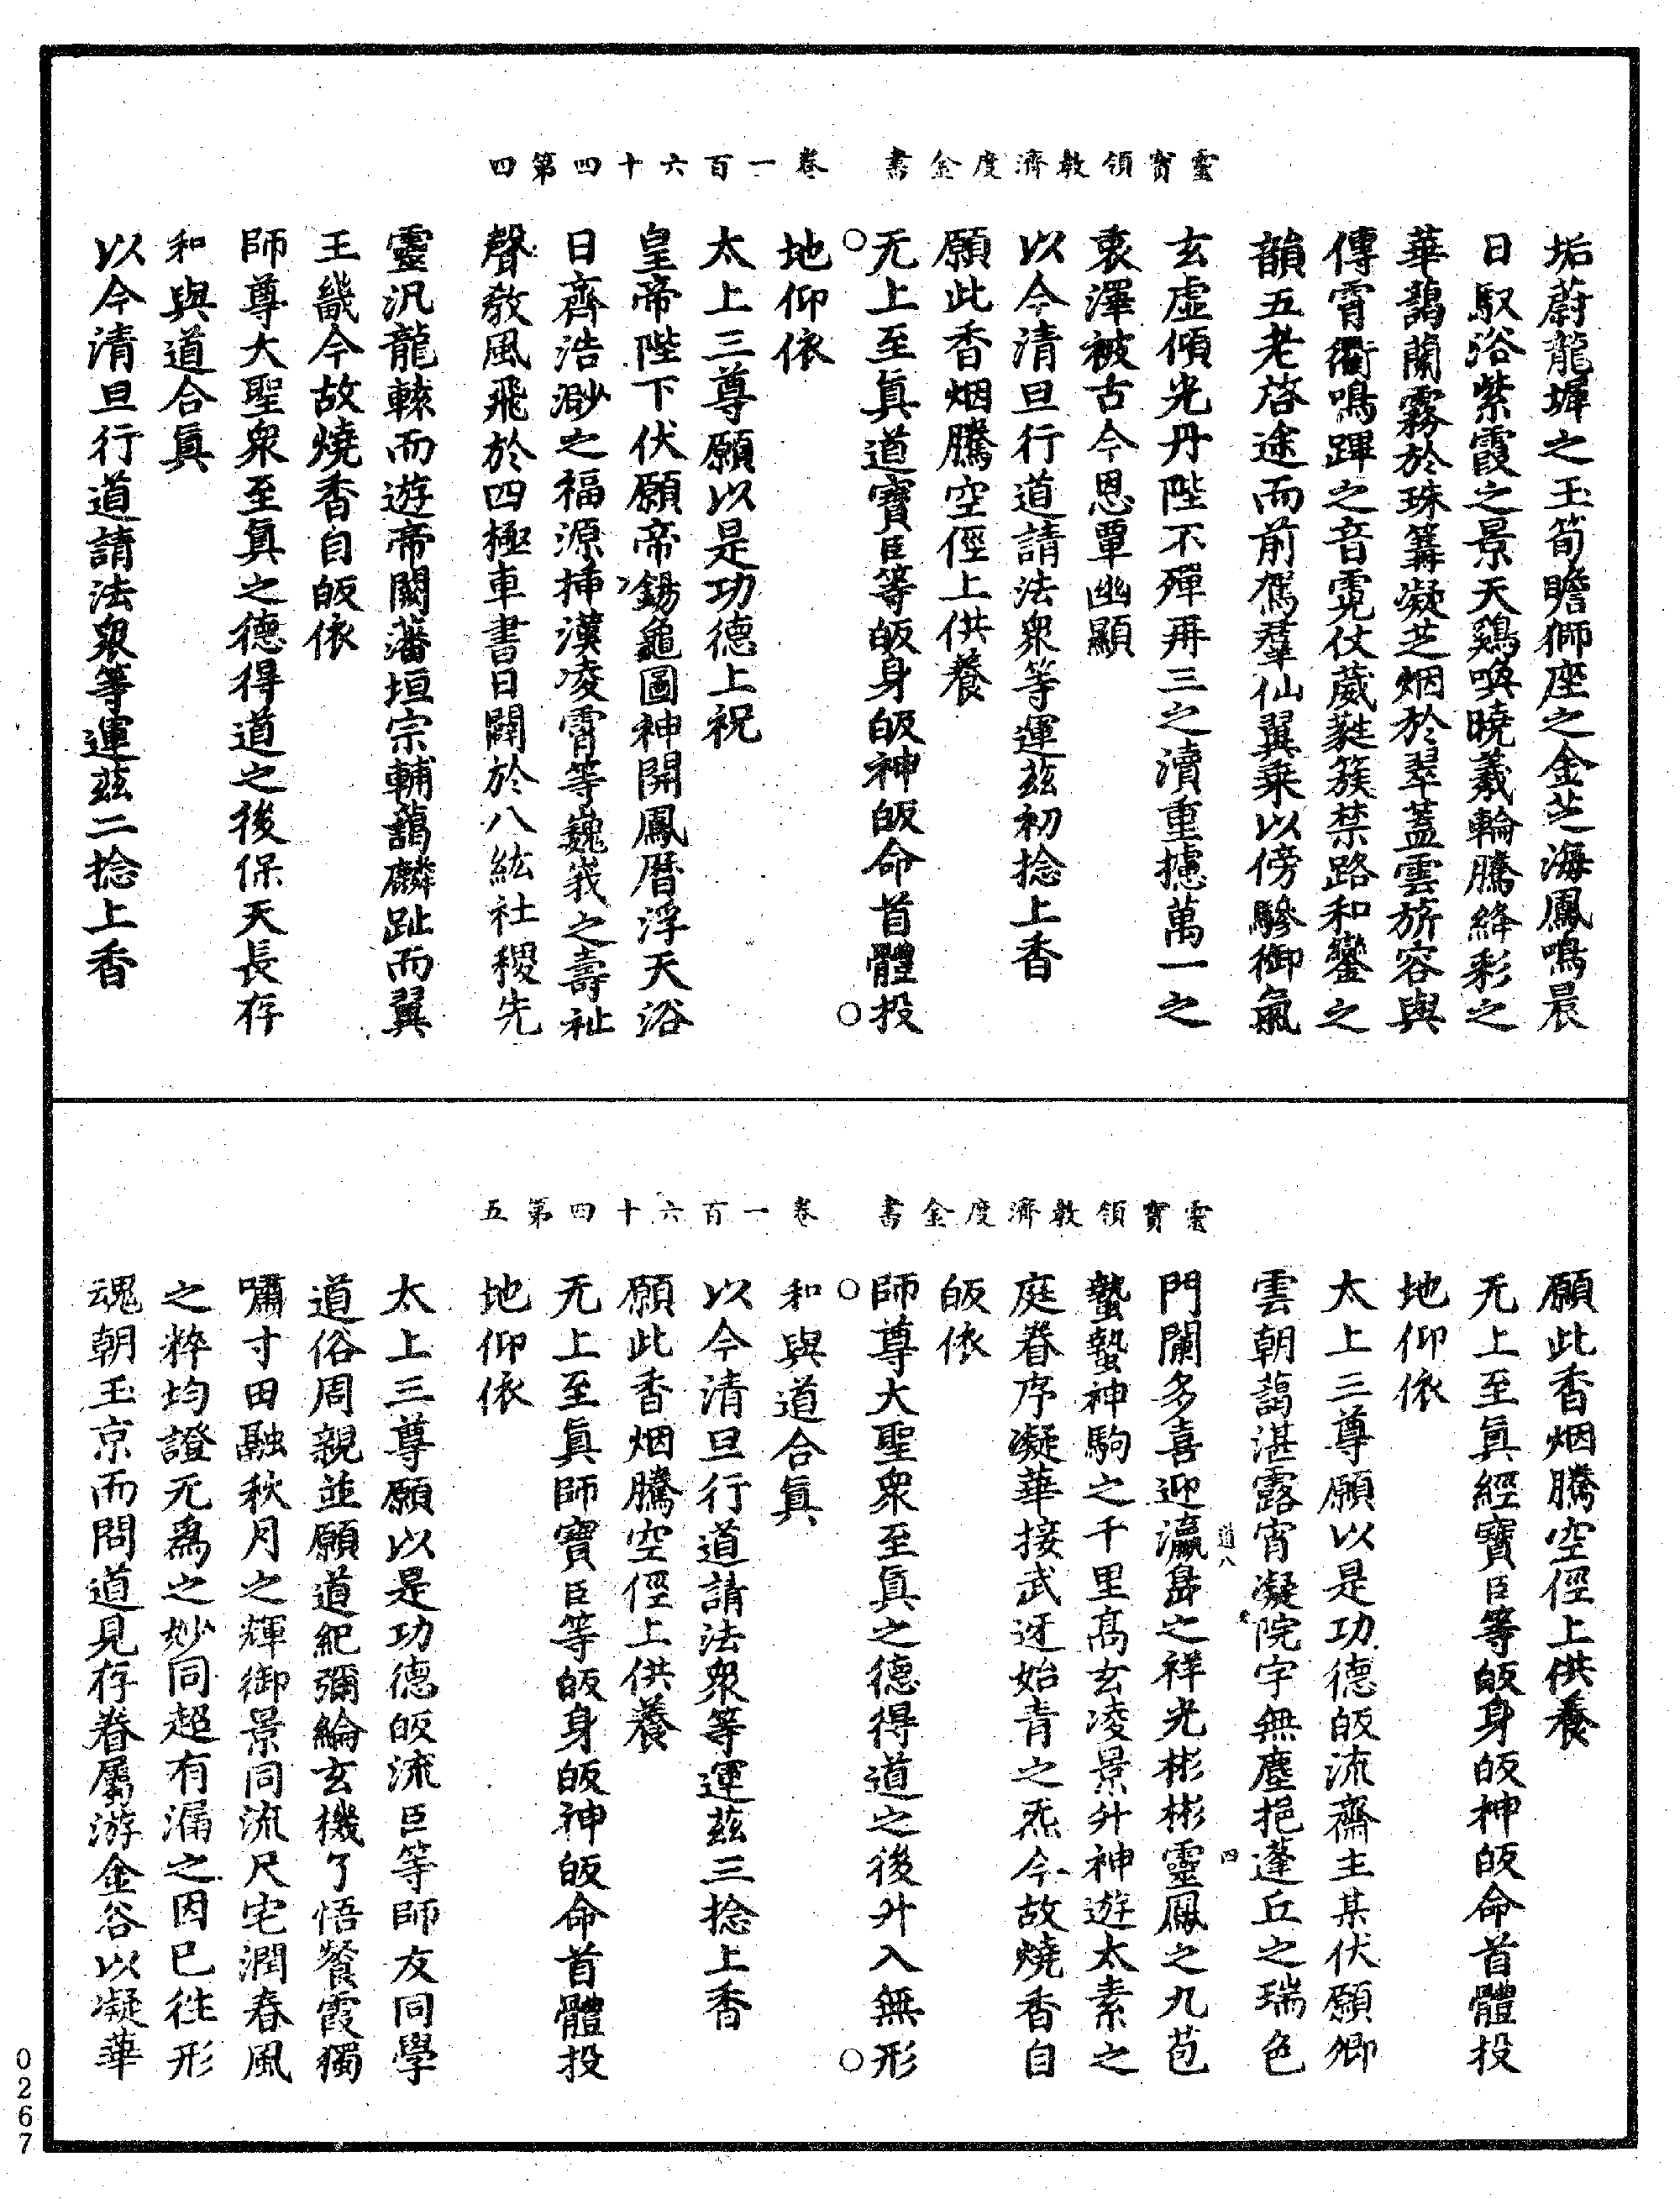 靈寶領教濟度金書　卷一百六十四第四
垢蔚龍墀之玉筍瞻獅座之金芝海鳳鳴晨
日馭浴紫霞之景天鷄喚曉羲輪騰絳彩之
華藹蘭霧於珠篝凝芝烟於翠蓋雲旂容與
傳霄衢鳴蹕之音霓仗葳蕤簇禁路和鑾之
韻五老啓途而前駕羣仙翼乘以傍驂御氣
玄虛傾光丹陛不殫再三之瀆重攄萬一之
衷澤被古今恩覃幽顯
以今清旦行道請法衆等運茲初捻上香
願此香烟騰空徑上供養
无上至眞道寶臣等皈身皈神皈命首體投
地仰依
太上三尊願以是功德上祝
皇帝陛下伏願帝錫龜圖神開鳳曆浮天浴
日齊浩渺之福源挿漢凌霄等巍峩之壽祉
聲教風飛於四極車書日闢於八紘社稷先
靈汎龍轅而遊帝闕藩垣宗輔藹麟趾而翼
王畿今故燒香自皈依
師尊大聖衆至眞之德得道之後保天長存
和與道合眞
以今清旦行道請法衆等運茲二捻上香
靈寶領教濟度金書　卷一百六十四第五
願此香烟騰空徑上供養
无上至眞經寶臣等皈身皈神皈命首體投
地仰依
太上三尊願以是功德皈流齋主某伏願卿
雲朝藹湛露宵凝院宇無塵挹蓬丘之瑞色
道八　四
門闌多喜迎瀛島之祥光彬彬靈鳳之九苞
蟄蟄神駒之千里高玄凌景升神遊太素之
庭眷序凝華接武迓始青之炁今故燒香自
皈依
師尊大聖衆至眞之德得道之後升入無形
和與道合眞
以今清旦行道請法衆等運茲三捻上香
願此香烟騰空徑上供養
无上至眞師寶臣等皈身皈神皈命首體投
地仰依
太上三尊願以是功德皈流臣等師友同學
道俗周親並願道紀彌綸玄機了悟餐霞獨
嘯寸田融秋月之輝御景同流尺宅潤春風
之粹均證无爲之妙同超有漏之因已往形
魂朝玉京而問道見存眷屬游金谷以凝華
0267